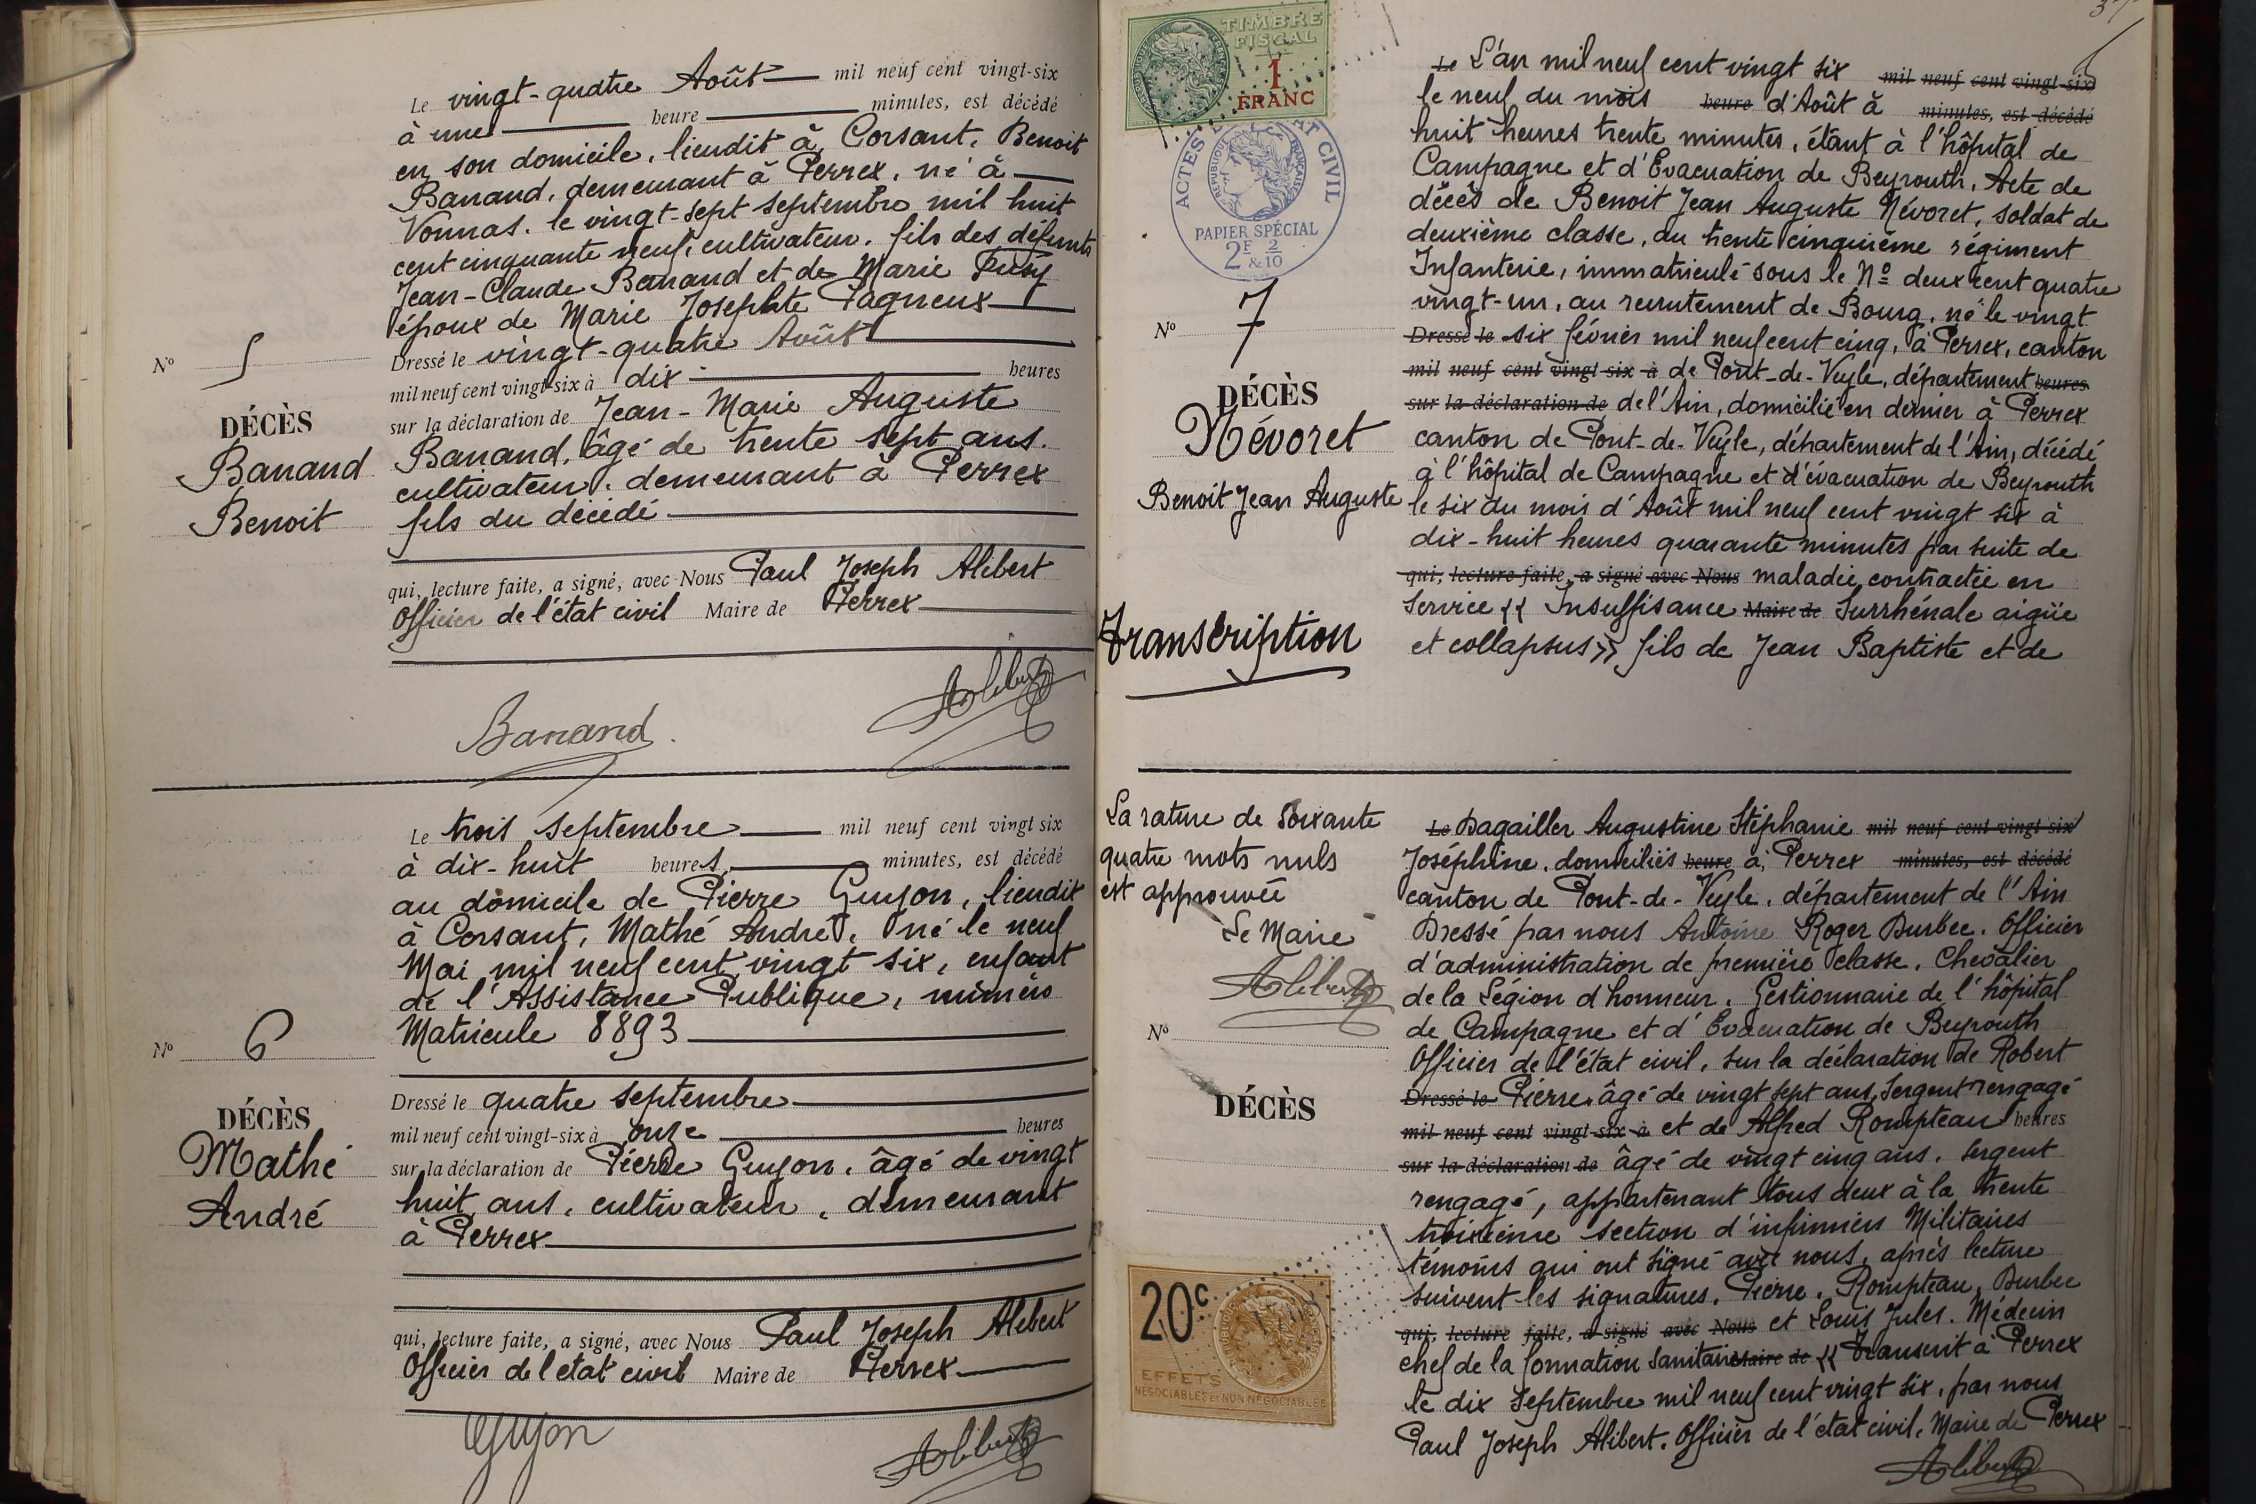 Le vingt-quatre Août mil neuf cent vingt-six
à une heure minutes, est décédé
en son domicile, lieudit à Corsant, Benoit
Banand, demeurant à Perrex, né à
Vonnas, le vingt-sept septembre mil huit
cent cinquante neuf, cultivateur, fils des défunts
Jean-Claude Banand et de Marie
époux de Marie Josephte Pagneux
Dressé le vingt-quatre Août
mil neuf cent vingt-six à dix heures
sur la déclaration de Jean-Marie Auguste
Banand, âgé de trente sept ans,
cultivateur, demeurant à Perrex
fils du décédé
qui, lecture faite, a signé, avec Nous Paul Joseph Alibert
Officier de l'état civil Maire de Perrex
Nº 5
DÉCÈS
Banand
Benoit
Banand
Alibert
Le trois septembre mil neuf cent vingt six
à dix-huit heures, minutes, est décédé
au domicile de Pierre Guyon, lieudit
à Corsant, Mathé André, né le neuf
Mai mil neuf cent vingt six, enfant
de l'Assistance Publique, numéro
Matricule 8893
Nº 6
DÉCÈS
Mathé
André
Dressé le quatre septembre
mil neuf cent vingt-six à onze heures
sur la déclaration de Pierre Guyon, âgé de vingt
huit ans, cultivateur, demeurant
à Perrex
qui, lecture faite, a signé, avec Nous Paul Joseph Alibert
Officier de l'état civil Maire de Perrex
Guyon
Alibert
TIMBRE
FISCAL
1
FRANC
ACTES ÉTAT CIVIL
RÉPUBLIQUE FRANÇAISE
PAPIER SPÉCIAL
2F & 2/10
Nº 7
DÉCÈS
Névoret
Benoit Jean Auguste
Transcription
Le L'an mil neuf cent vingt six mil neuf cent vingt-six
le neuf du mois heure d'Août à minutes, est décédé
huit heures trente minutes, étant à l'hôpital de
Campagne et d'Evacuation de Beyrouth, Acte de
décès de Benoit Jean Auguste Névoret, soldat de
deuxième classe, au trente cinquième régiment
Infanterie, immatriculé sous le Nº deux cent quatre
vingt-un, au recrutement de Bourg, né le vingt
Dressé le six février mil neuf cent cinq, à Perrex, canton
mil neuf cent vingt-six à de Pont-de-Veyle, département heures
sur la déclaration de de l'Ain, domicilié en dernier à Perrex
canton de Pont-de-Veyle, département de l'Ain, décédé
à l'hôpital de Campagne et d'évacuation de Beyrouth
le six du mois d'Août mil neuf cent vingt six à
dix-huit heures quarante minutes par suite de
qui, lecture faite, a signé avec Nous maladie contractée en
Service « Insuffisance Maire de Surrhénale aigüe
et collapsus » fils de Jean Baptiste et de
La rature de soixante
quatre mots nuls
est approuvée
Le Maire
Alibert
Nº
DÉCÈS
20c
EFFETS
NÉGOCIABLES ET NON NÉGOCIABLES
Le Dagailler Augustine Stéphanie mil neuf cent vingt-six
Joséphine, domiciliés heure à Perrex minutes, est décédé
canton de Pont-de-Veyle, département de l'Ain
Dressé par nous Antoine Roger Durbec, Officier
d'administration de première classe, Chevalier
de la Légion d'honneur, Gestionnaire de l'hôpital
de Campagne et d'Evacuation de Beyrouth
Officier de l'état civil, sur la déclaration de Robert
Dressé le Pierre, âgé de vingt sept ans, Sergent rengagé
mil neuf cent vingt-six à et de Alfred Rompteau heures
sur la déclaration de âgé de vingt cinq ans, sergent
rengagé, appartenant tous deux à la trente
troisième section d'infirmiers Militaires
témoins qui ont signé avec nous, après lecture
suivent les signatures, Pierre, Rompteau, Durbec
qui, lecture faite, a signé avec Nous et Louis Jules, Médecin
chef de la formation Sanitaire Maire de « Transcrit à Perrex
le dix Septembre mil neuf cent vingt six, par nous
Paul Joseph Alibert, Officier de l'état civil, Maire de Perrex
Alibert